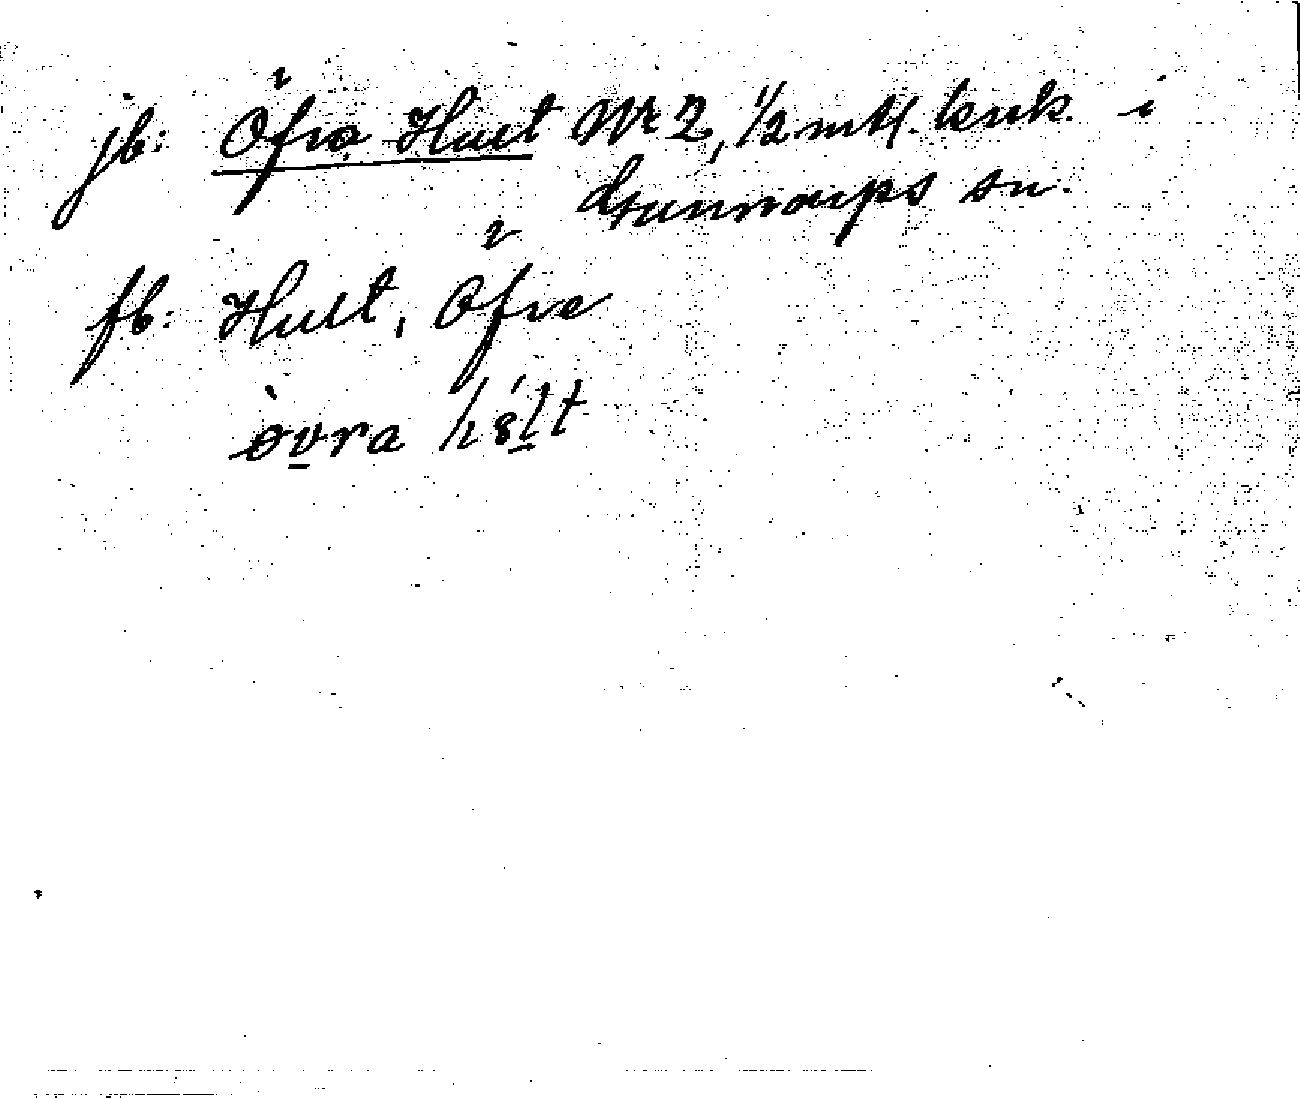 jb: Öfra Hult Nr 2, 1/2 mtl. krsk. i
Gunnarps sn.
fb: Hult, Öfre
òvra h8́lt